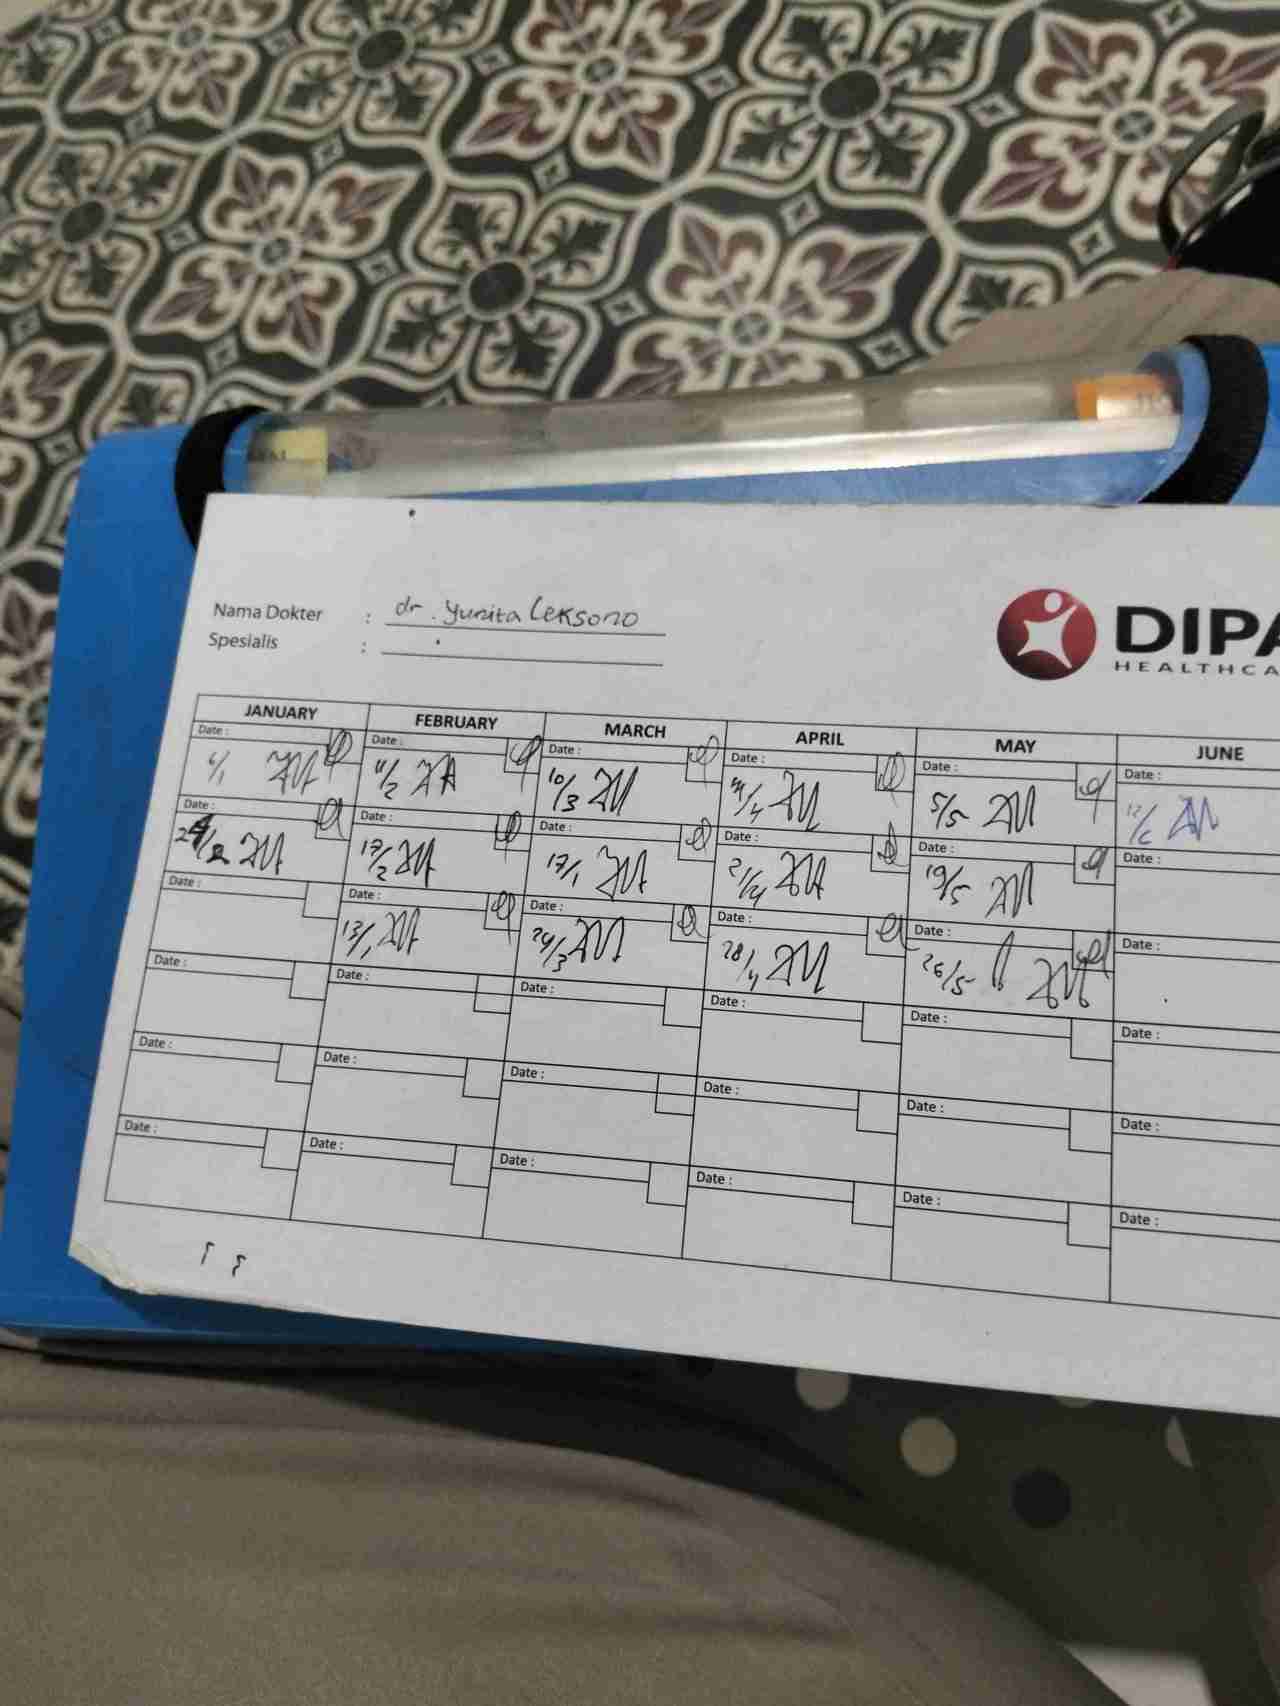 Nama Dokter : dr. Yunita Leksono
Spesialis :
DIPA
HEALTHCA
JANUARY FEBRUARY MARCH APRIL MAY JUNE
Date : Date : Date : Date : Date : Date :
6/1 11/2 10/3 5/5
Date : Date : Date : Date : Date : Date :
17/2 17/1 21/4 19/5
Date : Date : Date : Date : Date : Date :
13/1 24/3 28/4 26/5
Date : Date : Date : Date : Date : Date :
Date : Date : Date : Date : Date : Date :
Date : Date : Date : Date : Date : Date :